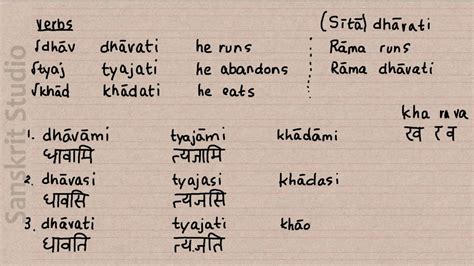 Sanskrit Studio
verbs
√dhāv dhāvati he runs
√tyaj tyajati he abandons
√khād khādati he eats
(Sītā) dhāvati
Rāma runs
Rāma dhāvati
kha ra va
ख र व
1. dhāvāmi tyajāmi khādāmi
धावामि त्यजामि
2. dhāvasi tyajasi khādasi
धावसि त्यजसि
3. dhāvati tyajati khāo
धावति त्यजति